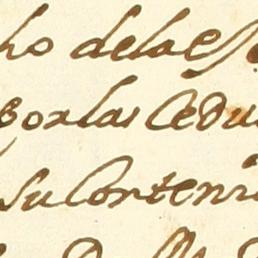 ho delaes
por las Cedu
su Conteni